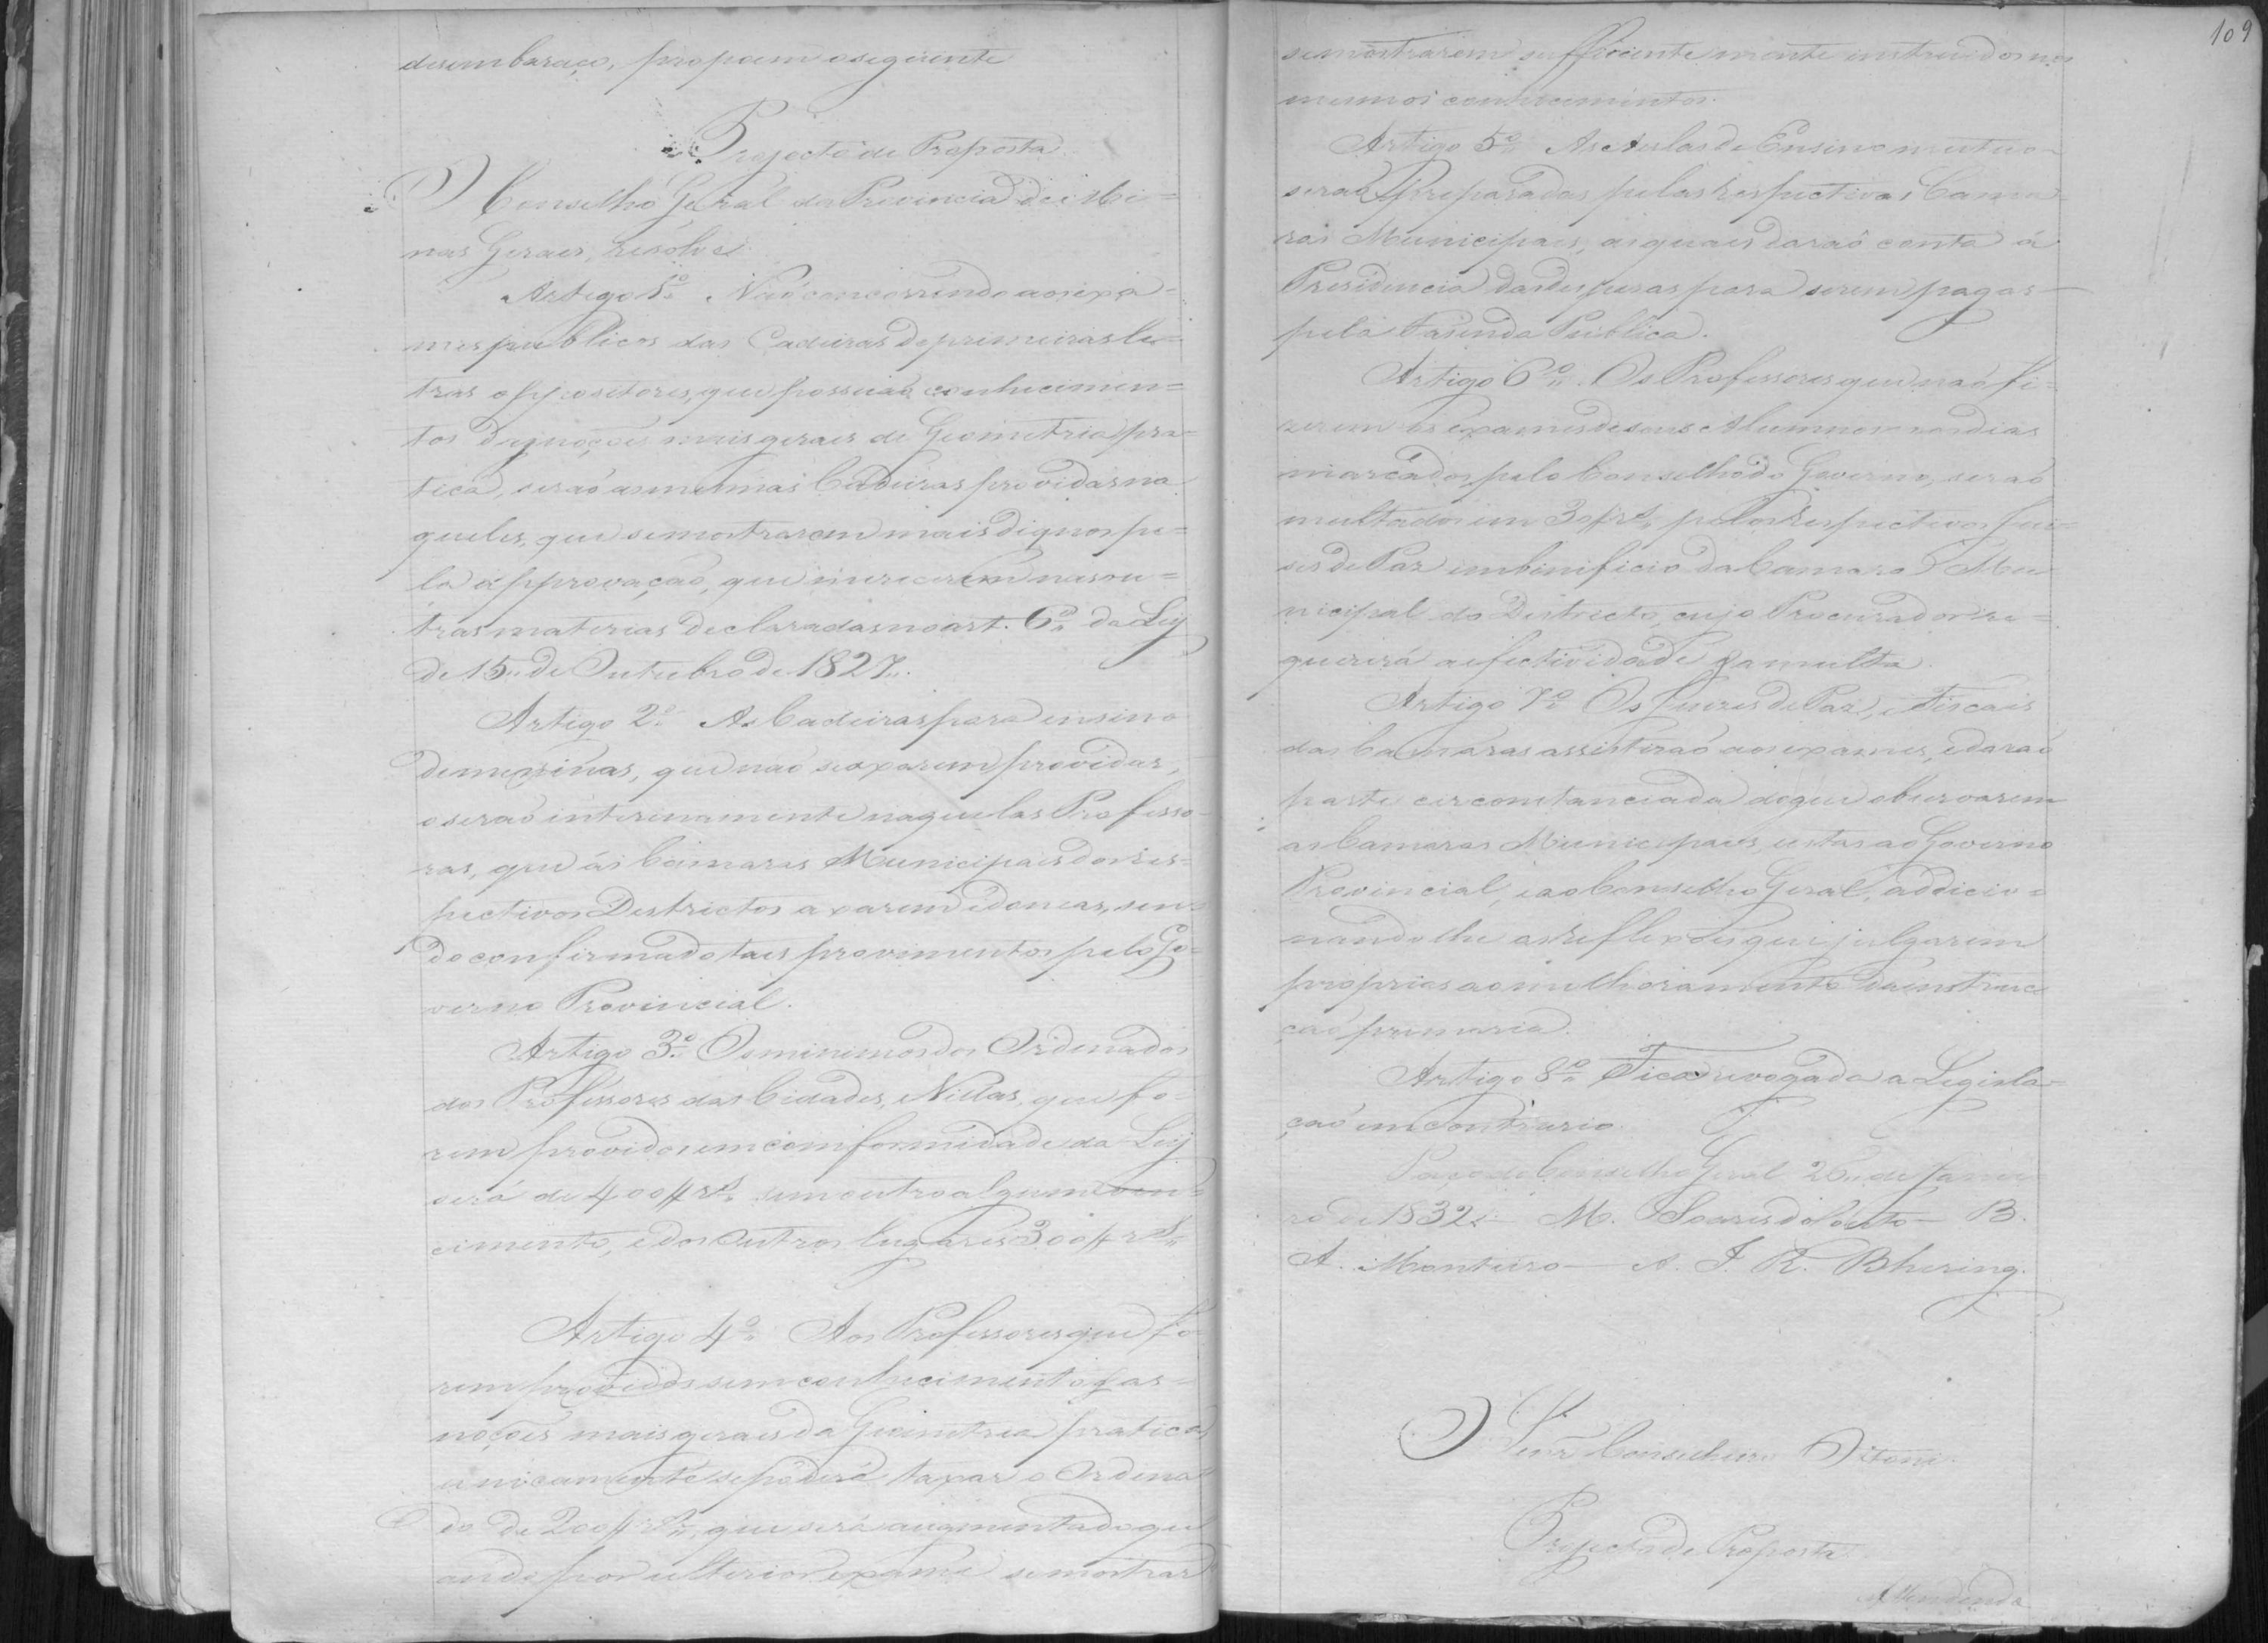 desembaraço, propoem o seguinte
Projecto de Proposta
O Conselho Geral da Provincia de Mi=
nas Geraes, resolve
Artigo 1º Naõ concorrendo aos exa=
mes publicos das Cadeiras de primeiras le=
tras oppositores, que possuaõ conhecimen=
tos de noções mais geraes de Geometria pra=
tica, seraõ as mesmas Cadeiras providas na
queles, que se mostrarem mais dignos pe=
la approvaçaõ, que merecerem nas ou=
tras materias declaradas no art. 6º da Ley
de 15 de Outubro de 1827.
Artigo 2º As Cadeiras para ensino
de meninas, que naõ se axarem providas,
o seraõ interinamente naquelas Professo-
ras, que as Camaras Municipais dos res=
pectivos Destrictos axarem idoneas, sen=
do confirmado taes provimentos pelo Go=
verno Provincial.
Artigo 3º Os minimos dos Ordenados
dos Professores das Cidades, e Villas, que fo=
rem providos em comformidade da Ley
será de 400$rs. sem outro algum ven=
cimento, e dos outros lugares 300$rs.
Artigo 4º Aos Professores que fo=
rem providos sem conhecimento das
noções mais geraes da Geometria pratica
unicamente se poderá taxar o Ordena
do de 200$rs., que será augmentado qu
ando por ulterior exame se mostrar
109
se mostrarem sufficientemente instruidos nos
mesmos conhecimentos.
Artigo 5º As Aulas de Ensino mutuo
seraõ preparadas pelas respectivas Cama
ras Municipaes, as quaes daraõ conta á
Presidencia das despesas para serem pagas
pela Fasenda Publica.
Artigo 6º Os Professores que naõ fi=
zerem os exames de seus Alumnos nos dias
marcados pelo Conselho do Governo, seraõ
multados em 30$rs. pelos respectivos Jui=
ses de Paz em beneficio da Camara Mu
nicipal do Destricto, cujo Procurador re=
quererá a efectividade da multa.
Artigo 7º Os Juizes de Paz, e Fiscais
das Camaras assistiraõ aos exames, e daraõ
parte circonstanciada do que observarem
as Camaras Municipaes, estas ao Governo
Provincial, e ao Conselho Geral, addicio=
nando lhe as reflexões que julgarem
proprias ao melhoramento da instruc
çaõ primaria.
Artigo 8º Fica revogada a Legisla=
çaõ em contrario.
Paço do Conselho Geral 26 de Janei
ro de 1832 — M. Soares do Couto — B.
A. Monteiro — A. J. R. Bhering.
O Senr. Conselheiro Ottoni
Projecto de Proposta
Attendendo